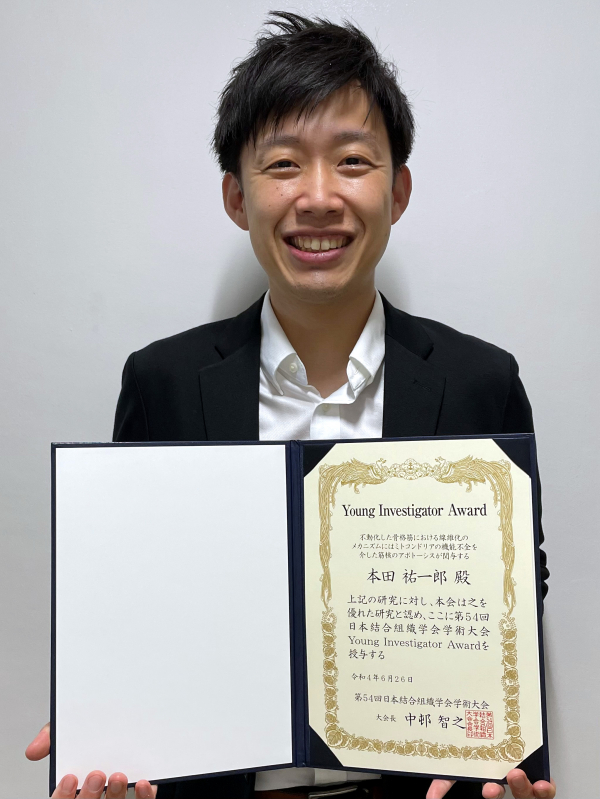 Young Investigator Award
不動化した骨格筋における線維化の
メカニズムにはミトコンドリアの機能不全を
介した筋核のアポトーシスが関与する
本田 祐一郎 殿
上記の研究に対し、本会は之を
優れた研究と認め、ここに第54回
日本結合組織学会学術大会
Young Investigator Awardを
授与する
令和4年6月26日
第54回日本結合組織学会学術大会
大会長 中邨 智之